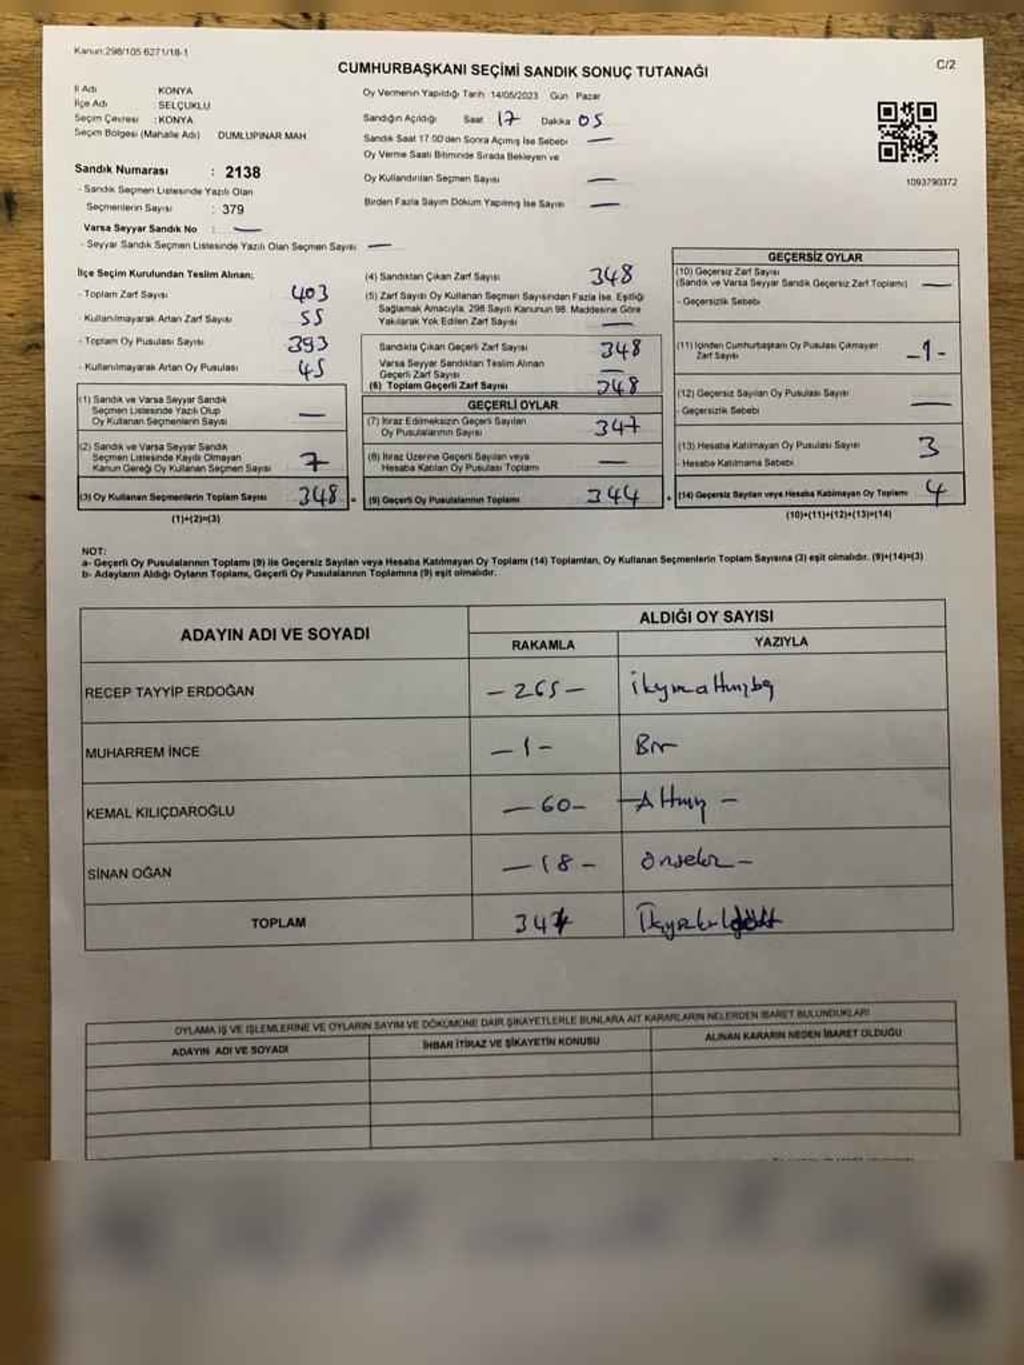 Kanun:298/105 6271/18-1
CUMHURBAŞKANI SEÇİMİ SANDIK SONUÇ TUTANAĞI
C/2
İl Adı : KONYA
İlçe Adı : SELÇUKLU
Seçim Çevresi : KONYA
Seçim Bölgesi (Mahalle Adı) DUMLUPINAR MAH
Sandık Numarası : 2138
- Sandık Seçmen Listesinde Yazılı Olan
Seçmenlerin Sayısı : 379
Varsa Seyyar Sandık No : —
- Seyyar Sandık Seçmen Listesinde Yazılı Olan Seçmen Sayısı —
Oy Vermenin Yapıldığı Tarih 14/05/2023 Gün Pazar
Sandığın Açıldığı Saat 17 Dakika 05
Sandık Saat 17:00'den Sonra Açımış İse Sebebi —
Oy Verme Saati Bitiminde Sırada Bekleyen ve
Oy Kullandırılan Seçmen Sayısı —
Birden Fazla Sayım Döküm Yapılmış İse Sayısı —
1093790372
İlçe Seçim Kurulundan Teslim Alınan;
- Toplam Zarf Sayısı 403
- Kullanılmayarak Artan Zarf Sayısı 55
- Toplam Oy Pusulası Sayısı 393
- Kullanılmayarak Artan Oy Pusulası 45
(1) Sandık ve Varsa Seyyar Sandık
Seçmen Listesinde Yazılı Olup
Oy Kullanan Seçmenlerin Sayısı —
(2) Sandık ve Varsa Seyyar Sandık
Seçmen Listesinde Kayıtlı Olmayan
Kanun Gereği Oy Kullanan Seçmen Sayısı 7
(3) Oy Kullanan Seçmenlerin Toplam Sayısı 348
(1)+(2)=(3)
(4) Sandıktan Çıkan Zarf Sayısı 348
(5) Zarf Sayısı Oy Kullanan Seçmen Sayısından Fazla İse, Eşitliği
Sağlamak Amacıyla, 298 Sayılı Kanunun 98. Maddesine Göre
Yakılarak Yok Edilen Zarf Sayısı —
Sandıkta Çıkan Geçerli Zarf Sayısı 348
Varsa Seyyar Sandıktan Teslim Alınan
Geçerli Zarf Sayısı —
(6) Toplam Geçerli Zarf Sayısı 348
GEÇERLİ OYLAR
(7) İtiraz Edilmeksizin Geçerli Sayılan
Oy Pusulalarının Sayısı 347
(8) İtiraz Üzerine Geçerli Sayılan veya
Hesaba Katılan Oy Pusulası Toplamı —
(9) Geçerli Oy Pusulalarının Toplamı 344
GEÇERSİZ OYLAR
(10) Geçersiz Zarf Sayısı
(Sandık ve Varsa Seyyar Sandık Geçersiz Zarf Toplamı) —
- Geçersizlik Sebebi
(11) İçinden Cumhurbaşkanı Oy Pusulası Çıkmayan
Zarf Sayısı -1-
(12) Geçersiz Sayılan Oy Pusulası Sayısı —
- Geçersizlik Sebebi
(13) Hesaba Katılmayan Oy Pusulası Sayısı 3
- Hesaba Katılmama Sebebi
(14) Geçersiz Sayılan veya Hesaba Katılmayan Oy Toplamı 4
(10)+(11)+(12)+(13)=(14)
NOT:
a- Geçerli Oy Pusulalarının Toplamı (9) ile Geçersiz Sayılan veya Hesaba Katılmayan Oy Toplamı (14) Toplamları, Oy Kullanan Seçmenlerin Toplam Sayısına (3) eşit olmalıdır. (9)+(14)=(3)
b- Adayların Aldığı Oyların Toplamı, Geçerli Oy Pusulalarının Toplamına (9) eşit olmalıdır.
ADAYIN ADI VE SOYADI
ALDIĞI OY SAYISI
RAKAMLA YAZIYLA
RECEP TAYYİP ERDOĞAN -265- ikiyüzaltmışbeş
MUHARREM İNCE -1- Bir
KEMAL KILIÇDAROĞLU -60- -Altmış-
SİNAN OĞAN -18- Onsekiz-
TOPLAM
OYLAMA İŞ VE İŞLEMLERİNE VE OYLARIN SAYIM VE DÖKÜMÜNE DAİR ŞİKAYETLERLE BUNLARA AİT KARARLARIN NELERDEN İBARET BULUNDUKLARI
ADAYIN ADI VE SOYADI İHBAR İTİRAZ VE ŞİKAYETİN KONUSU ALINAN KARARIN NEDEN İBARET OLDUĞU